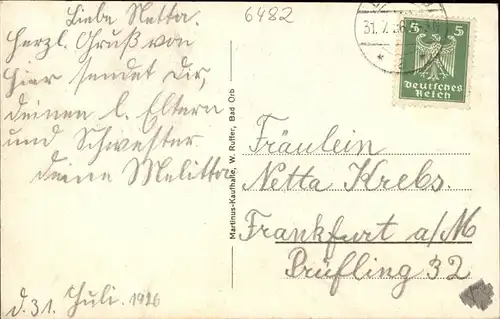 Liebe Netta.
Herzl. Gruß von
hier sendet Dir,
deinen l. Eltern
und Schwester
deine Melitta
d. 31. Juli. 1926
6482
31.7.26
5 5
Deutsches
Reich
Martinus-Kaufhalle, W. Ruffer, Bad Orb
Fräulein
Netta Krebs.
Frankfurt a/M
Prüfling 32